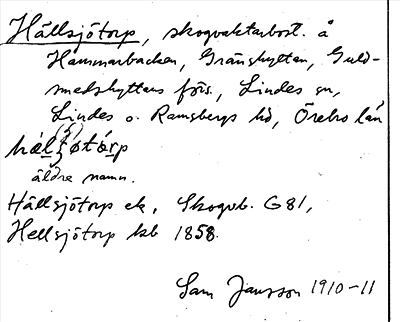 Hällsjötorp, skogvaktarbost. å
Hammarbacken, Gränshyttan, Guld-
smedshyttans förs., Lindes sn,
Lindes o. Ramsbergs hd, Örebro län
äldre namn.
Hällsjötorp ek, Skogvb. G81,
Hellsjötorp hsb 1858.
Sam Jansson 1910-11